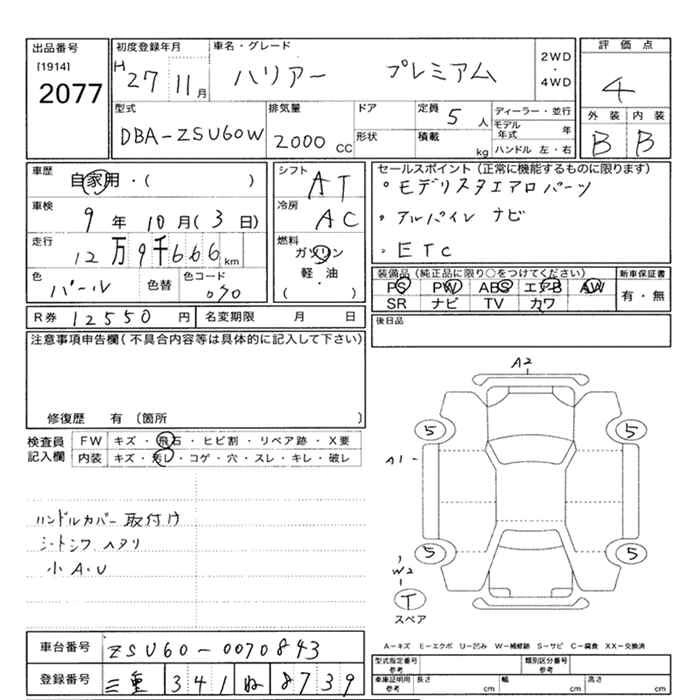 出品番号
[1914]
2077
初度登録年月
H 27 11月
車名・グレード
ハリアー プレミアム
2WD
・
4WD
評価点
4
外装 内装
B B
型式
DBA-ZSU60W
排気量
2000 CC
ドア
形状
定員 5 人
積載 kg
ディーラー・並行
モデル年式 年
ハンドル 左・右
車歴
自家用・( )
車検
9年10月(3日)
走行
12万9千666km
色
パール
色替
色コード
070
シフト
AT
冷房
AC
燃料
ガソリン
軽・油
( )
セールスポイント(正常に機能するものに限ります)
。モデリスタエアロパーツ
・アルパイン ナビ
・ETC
装備品(純正品に限り○をつけてください)
PS PW ABS エアB AW
SR ナビ TV カワ
新車保証書
有・無
R券 12550円
名変期限 月 日
後日品
注意事項申告欄(不具合内容等は具体的に記入して下さい)
修復歴 有 〔箇所 〕
検査員記入欄
FW キズ・飛石・ヒビ割・リペア跡・X要
内装 キズ・汚レ・コゲ・穴・スレ・キレ・破レ
ハンドルカバー取付け
シートシワ ヘタリ
小A・U
A2
5 5
A1
5 5
W2
T
スペア
車台番号
ZSU60-0070843
登録番号
三重 341 ね 8739
A-キズ E-エクボ U-凹み W-補修跡 S-サビ C-腐食 XX-交換済
型式指定番号
参考
類別区分番号
参考
車庫証明用
参考
長さ cm
幅 cm
高さ cm